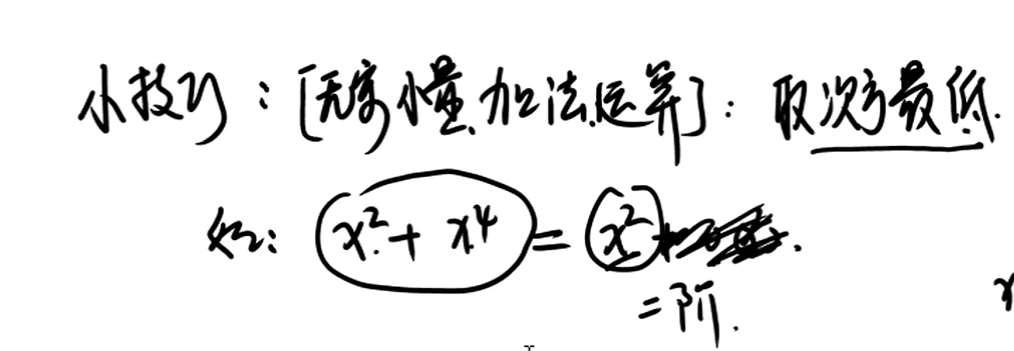 小技巧：[无穷小量加法运算]：取次方最低.
如：x²+ x⁴ = x² .
=阶.